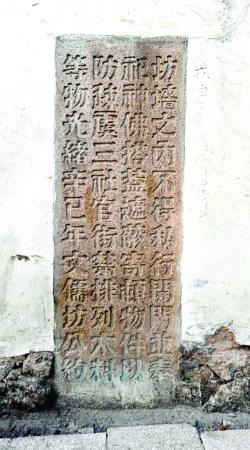 坊墻之內不得私行開門並奉
祀神佛搭蓋遮蔽寄頓物件以
防疎虞三社官街禁排列木料
等物光緒辛巳年文儒坊公約